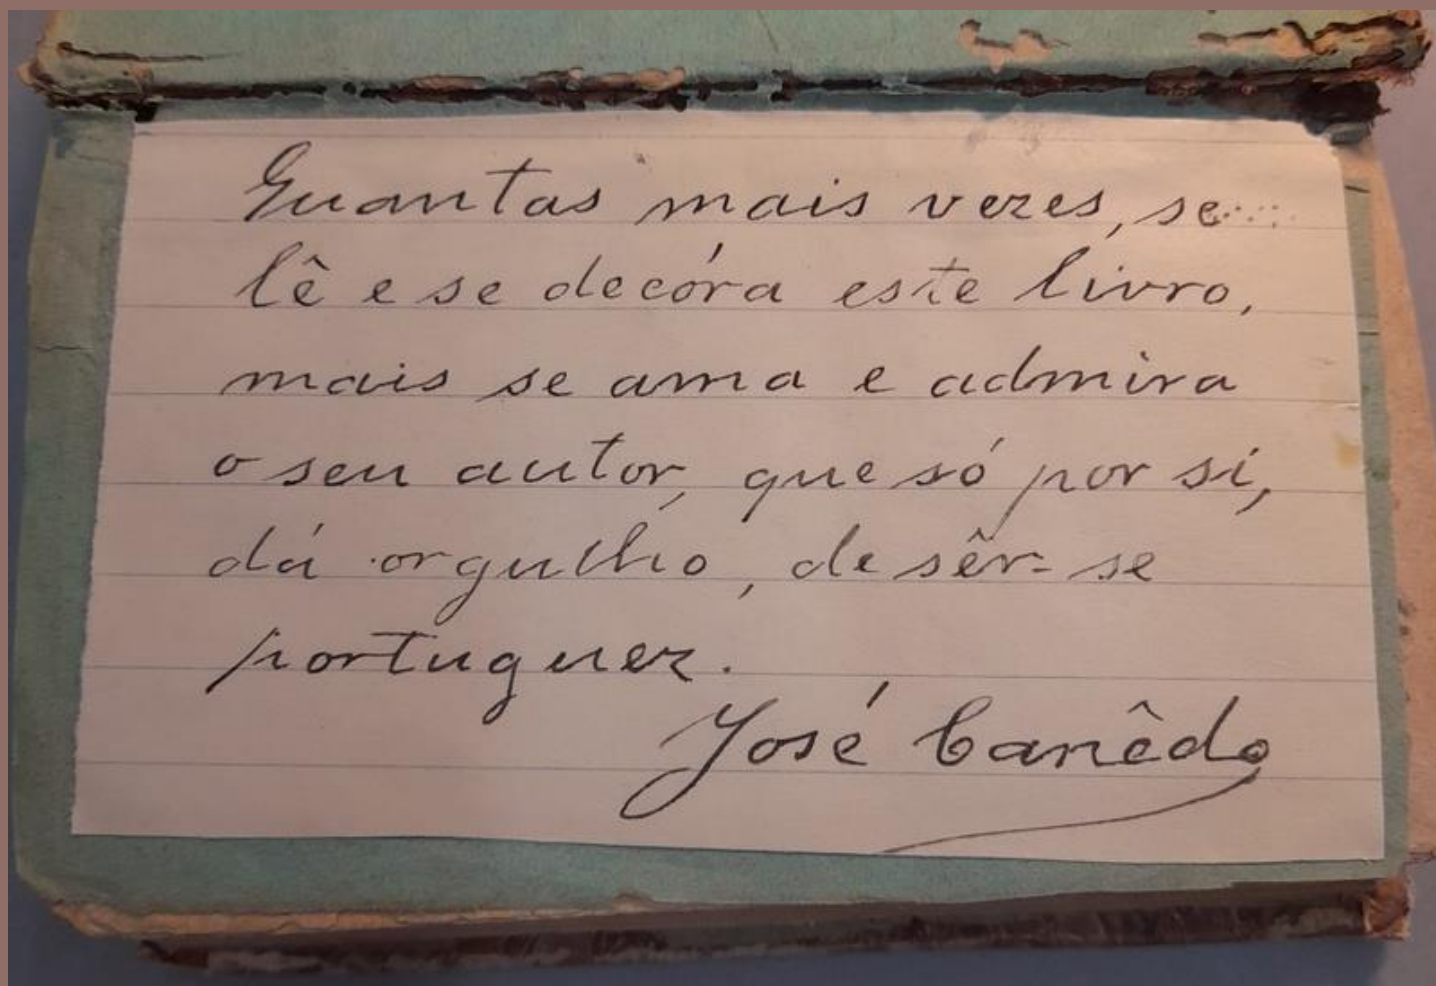 Quantas mais vezes, se
lê e se decóra este livro,
mais se ama e admira
o seu autor, que só por si,
dá orgulho, de sêr-se
portuguez.
José Canêdo